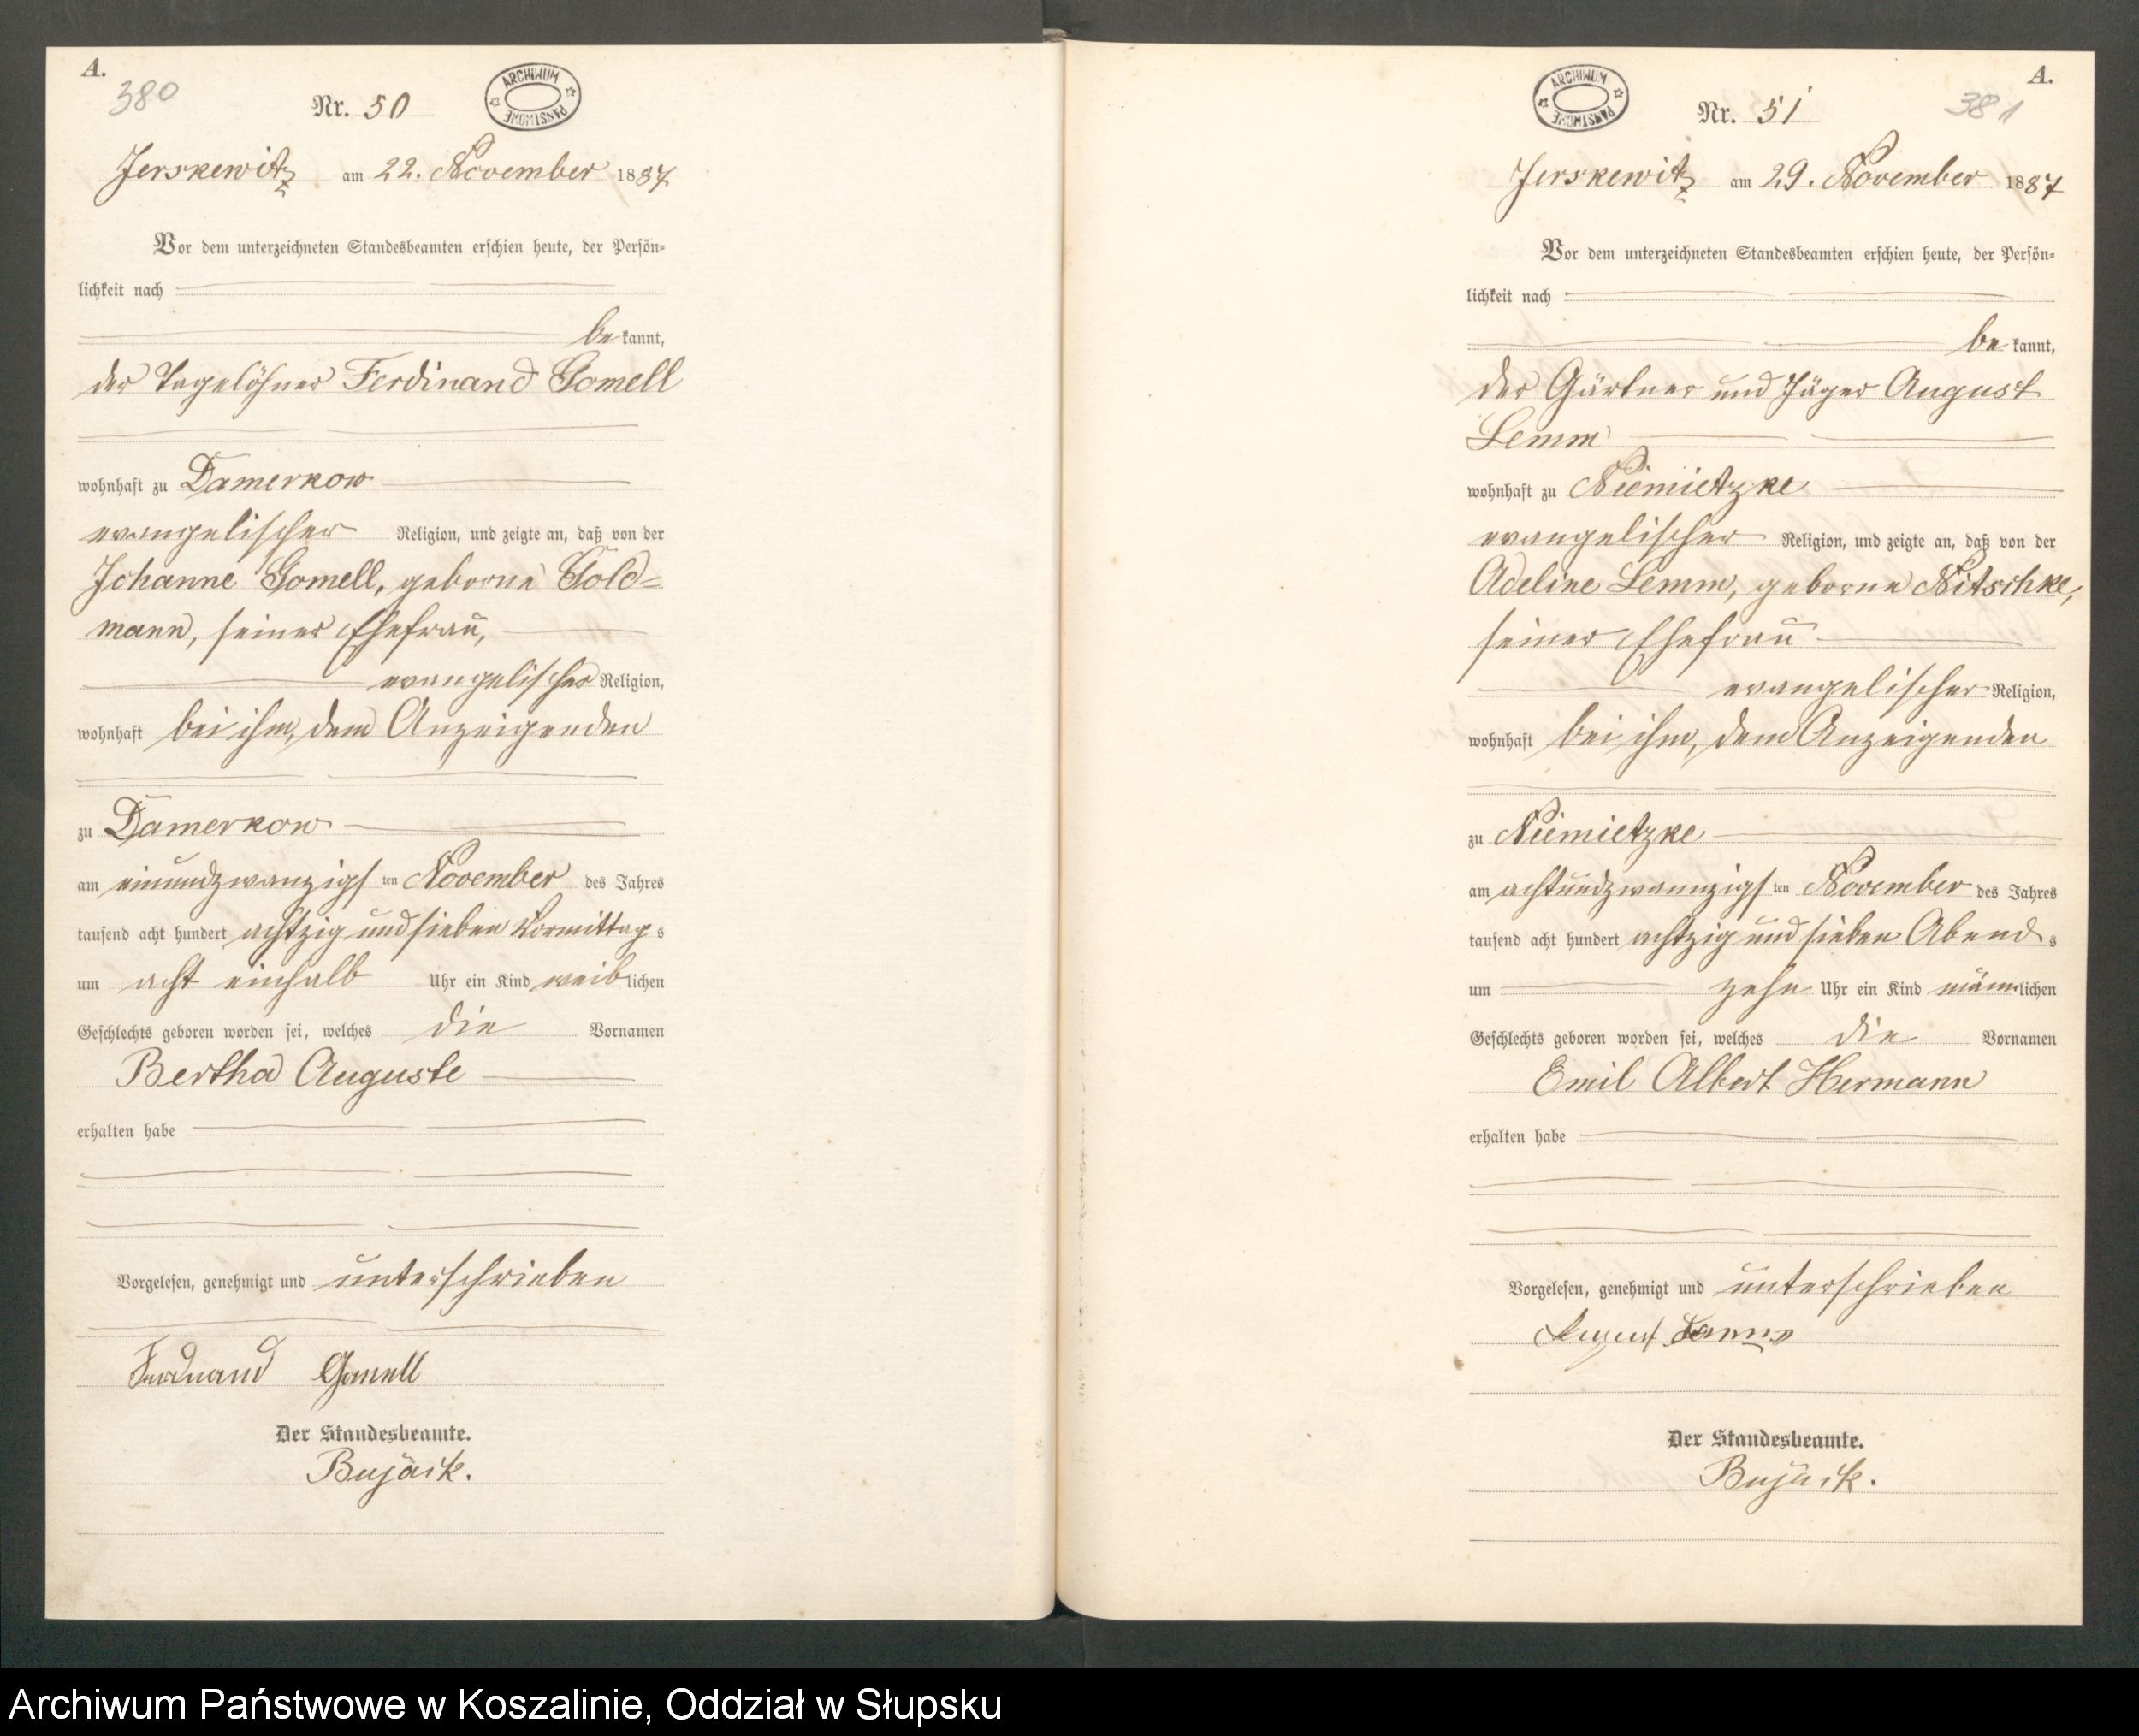 A.
380
Nr. 50
ARCHIWUM PAŃSTWOWE
Jerskewitz am 22. November 1887
Vor dem unterzeichneten Standesbeamten erschien heute, der Persön-
lichkeit nach
be kannt,
der Tagelöhner Ferdinand Gomell
wohnhaft zu Damerkow
evangelischer Religion, und zeigte an, daß von der
Johanne Gomell, geborne Gold-
mann, seiner Ehefrau,
evangelischer Religion,
wohnhaft bei ihm, dem Anzeigenden
zu Damerkow
am einundzwanzigs ten November des Jahres
tausend acht hundert achtzig und sieben Vormittag s
um acht einhalb Uhr ein Kind weib lichen
Geschlechts geboren worden sei, welches die Vornamen
Bertha Auguste
erhalten habe
Vorgelesen, genehmigt und unterschrieben
Ferdnand Gomell
Der Standesbeamte.
Bujack.
A.
381
Nr. 51
ARCHIWUM PAŃSTWOWE
Jerskewitz am 29. November 1887
Vor dem unterzeichneten Standesbeamten erschien heute, der Persön-
lichkeit nach
be kannt,
der Gärtner und Jäger August
Lemm
wohnhaft zu Niemietzke
evangelischer Religion, und zeigte an, daß von der
Adeline Lemm, geborne Nitschke,
seiner Ehefrau
evangelischer Religion,
wohnhaft bei ihm, dem Anzeigenden
zu Niemietzke
am achtundzwannzigs ten November des Jahres
tausend acht hundert achtzig und sieben Abend s
um zehn Uhr ein Kind männ lichen
Geschlechts geboren worden sei, welches die Vornamen
Emil Albert Hermann
erhalten habe
Vorgelesen, genehmigt und unterschrieben
August
Der Standesbeamte.
Bujack.
Archiwum Państwowe w Koszalinie, Oddział w Słupsku